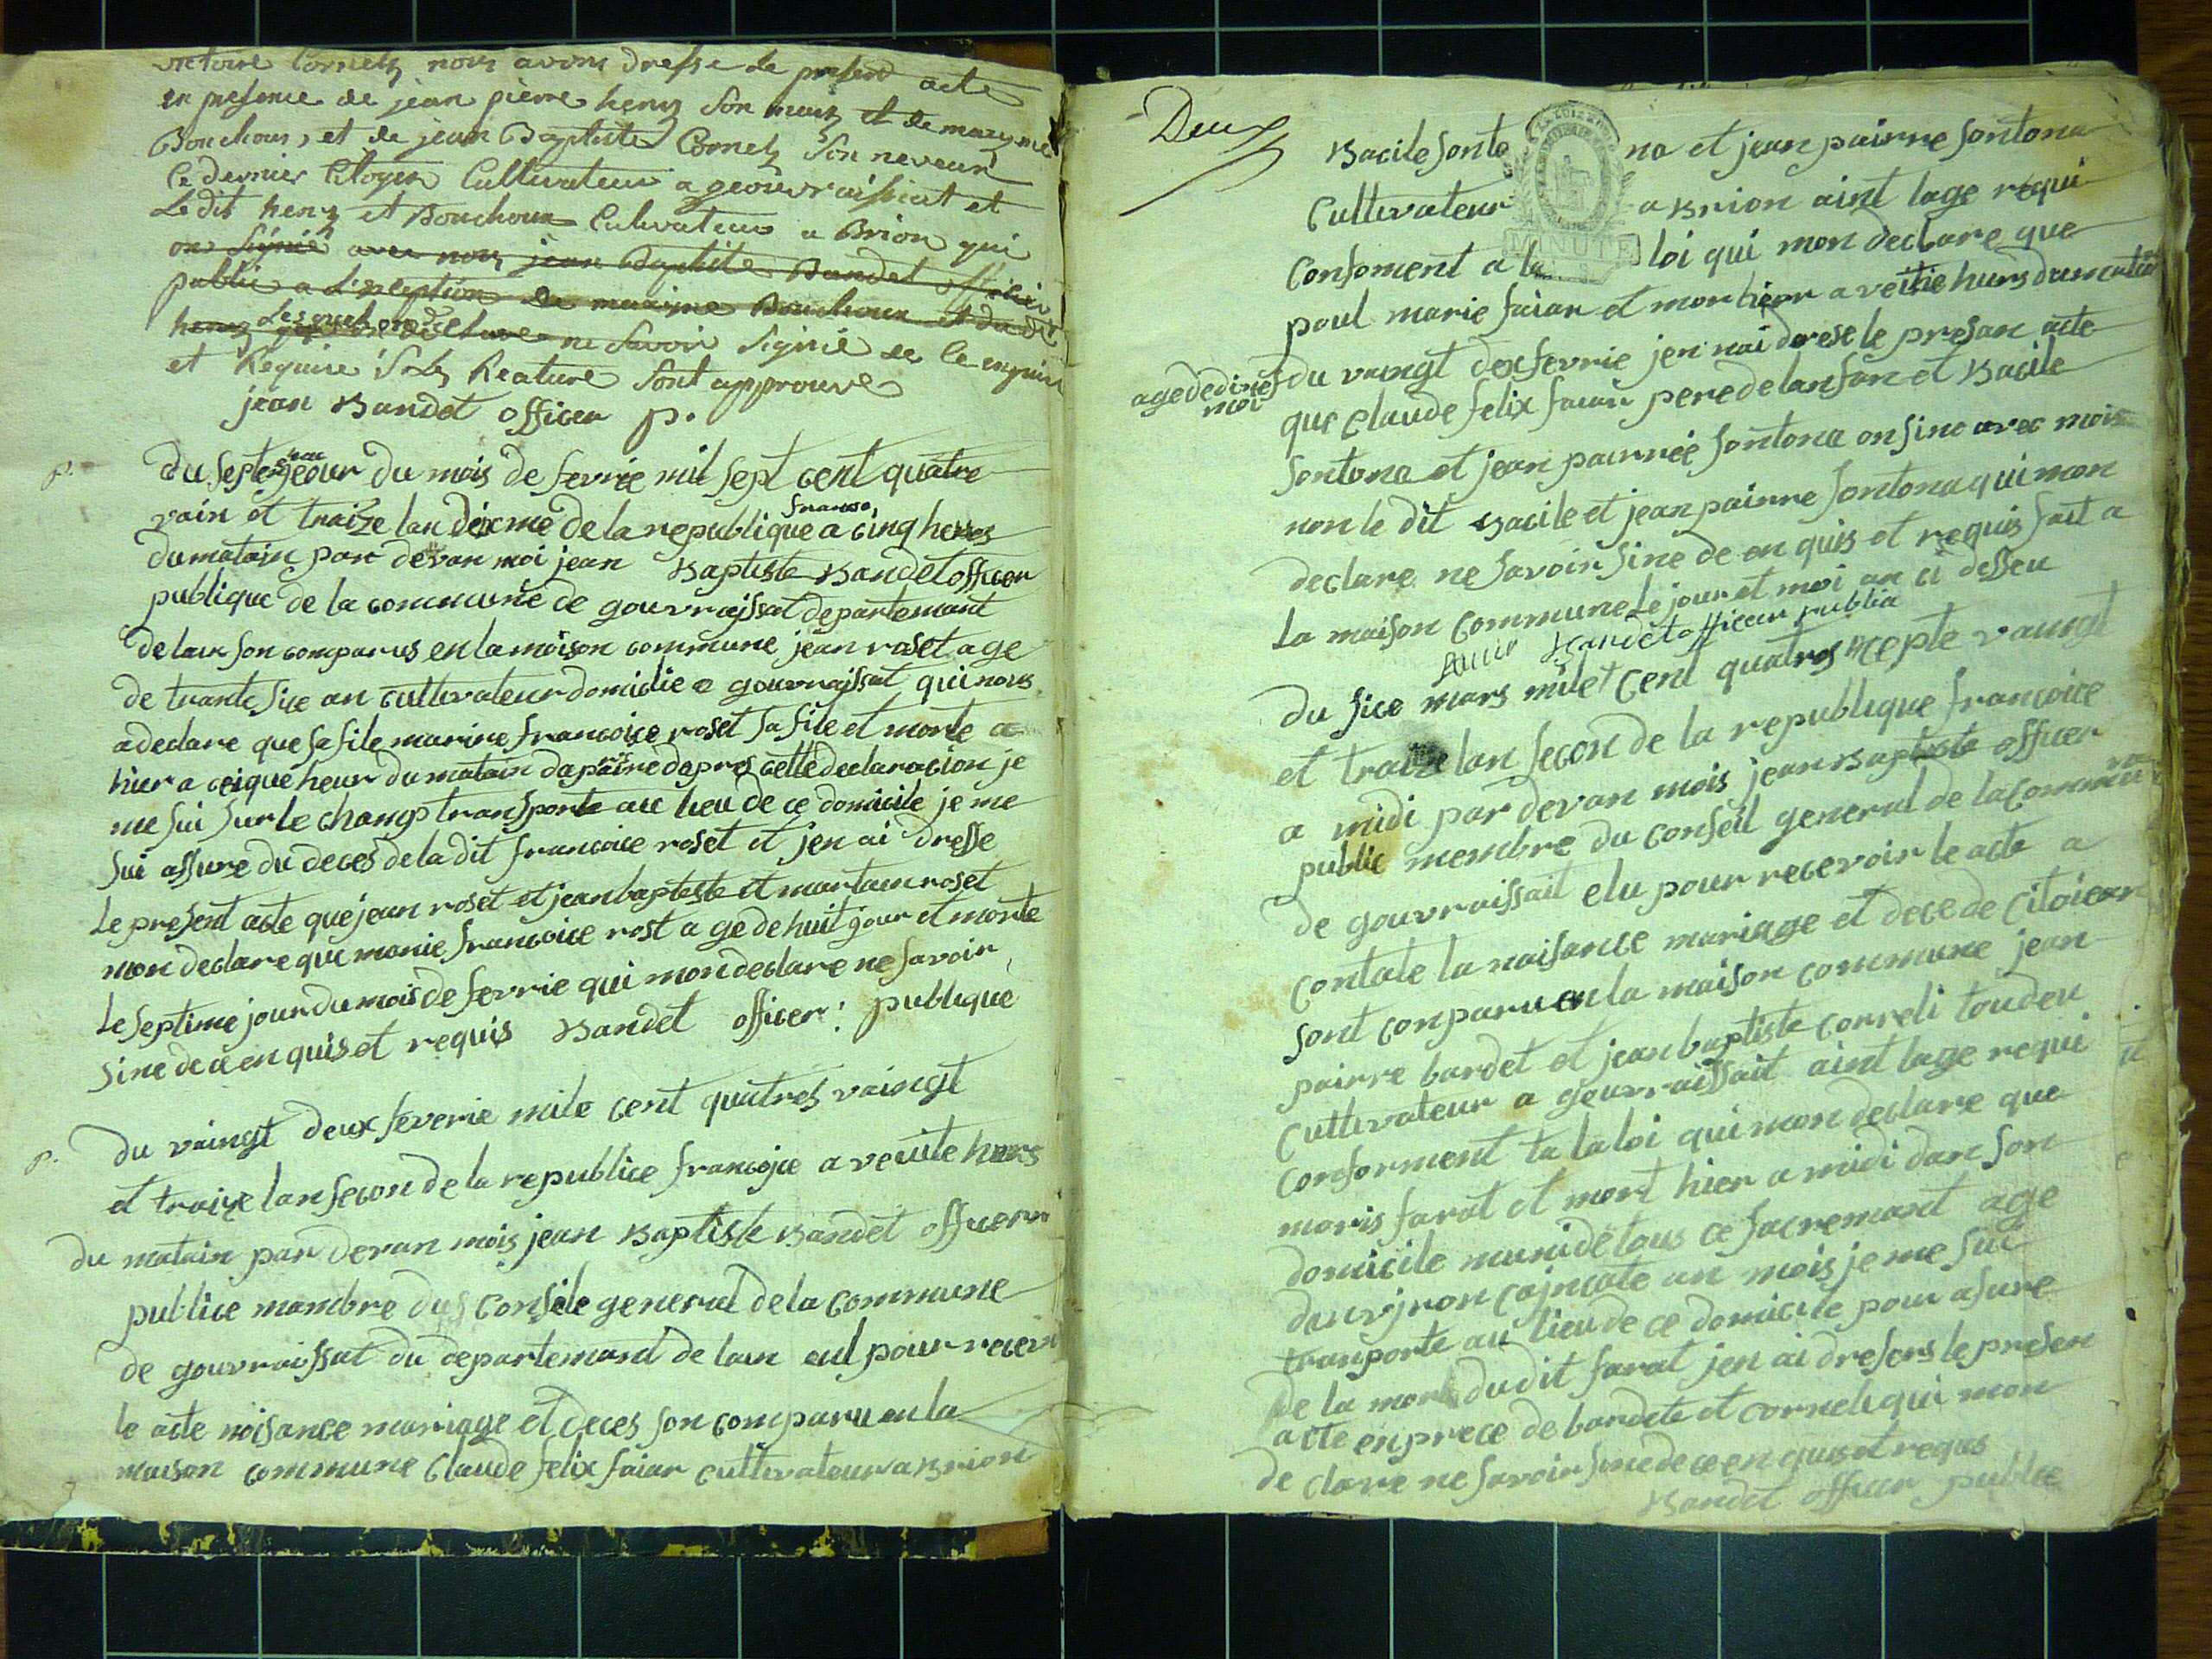 victoire Cornely nous avons dresse le present acte
en presence de jean pierre hery son mary et de maxyme
Bouchoux, et de jean Baptiste Cornely son neveur
le dernier Citoyen Cultivateur a geouvraissiat et
Ledit hery et Bouchoux Cultivateur a Brion qui
on signié avec nous jean Baptiste Bandet officier
public a l'exception de maxime Bouchoux et du dit
hery Lesquels on declare ne savoir signié de ce enquis
et Require Sols Reature sont approuvé
jean Bandet officer p.
p. du septieme jeour du mois de fevrie mil sept cent quatre
vain et traize lan deixme de la republique franse a cinq heres
du matain par devan moi jean Baptiste Bandet officer
publique de la commune de gouvraissat departemant
de lain son comparus en la maison commune jean roset age
de trante sice an cultivateur domicilie a gouvraissat qui nous
a declare que sa file marine francoice roset sa file et morte a
hier a ceique heur du matain dapaire dapres cette declaracion je
me sui sur le champ transporte au lieu de ce domicile je me
sui assure du deces de la dit francoice roset et jen ai dresse
Le present acte que jean roset et jean bapteste et martain roset
mon declare que marie francoice rost a ge de huit jour et morte
Le septime jour du mois de fevrie qui mon declare ne savoir
sine de ce en quis et requis Bandet officer: publique
p. du vaingt deux feverie mile cent quatres vaingt
et traize lan secon de la republice francoice a veuite hurs
du matain par devan mois jean Baptiste Bandet officerr
publice mambre dus consele general de la commune
de gouvraissat du departemand de lain eul pour recevir
le acte noisance mariage et deces son comparu en la
maison commune Claude felix faiar cultivateur a Brion
Deux
Bacile fonto na et jean pairne fontona
Cultivateur a Brion aint lage requi
Confoment a la loi qui mon declare que
MINUTE
poul marie faiar et mor hier a veitie hurs du matin
age de dixnef moi
du vaingt dex fevrie jen nai drese le presan acte
que claude felix faiar pere de lanfan et Bacile
fontona et jean pairnee fontona on sine avec mois
non le dit Bacile et jean pairne fontona qui mon
declare ne savoir sine de en quis et requis fait a
La maison commune Le jour et moi an ci desseu
Bandet officeur publice
du sice mars mile cent quatres cepte vaingt
et traize lan secon de la republique francoice
a midi par devan mois jean Baptiste officer
public membre du conseil general de la commune
de gouvraissait elu pour recevoir le acte a
contate la naisance mariage et dece de citoiean
sont conparu en la maison commune jean
pairre bardet et jean baptiste correli toudeu
cultivateur a gouvraissait aint lage requi
conforment ta la loi qui mon declare que
maris farat et mort hier a midi dan son
domicile muni de tous ce sacremant age
danviron cajncate an mois je me sui
tranporte au lieu de ce domicile pour asure
de la mort du dit farat jen ai dresers le presen
acte en prece de bardete et corneli qui mon
de clare ne savoir sine de ce en quis et requs
Bandet officer publice